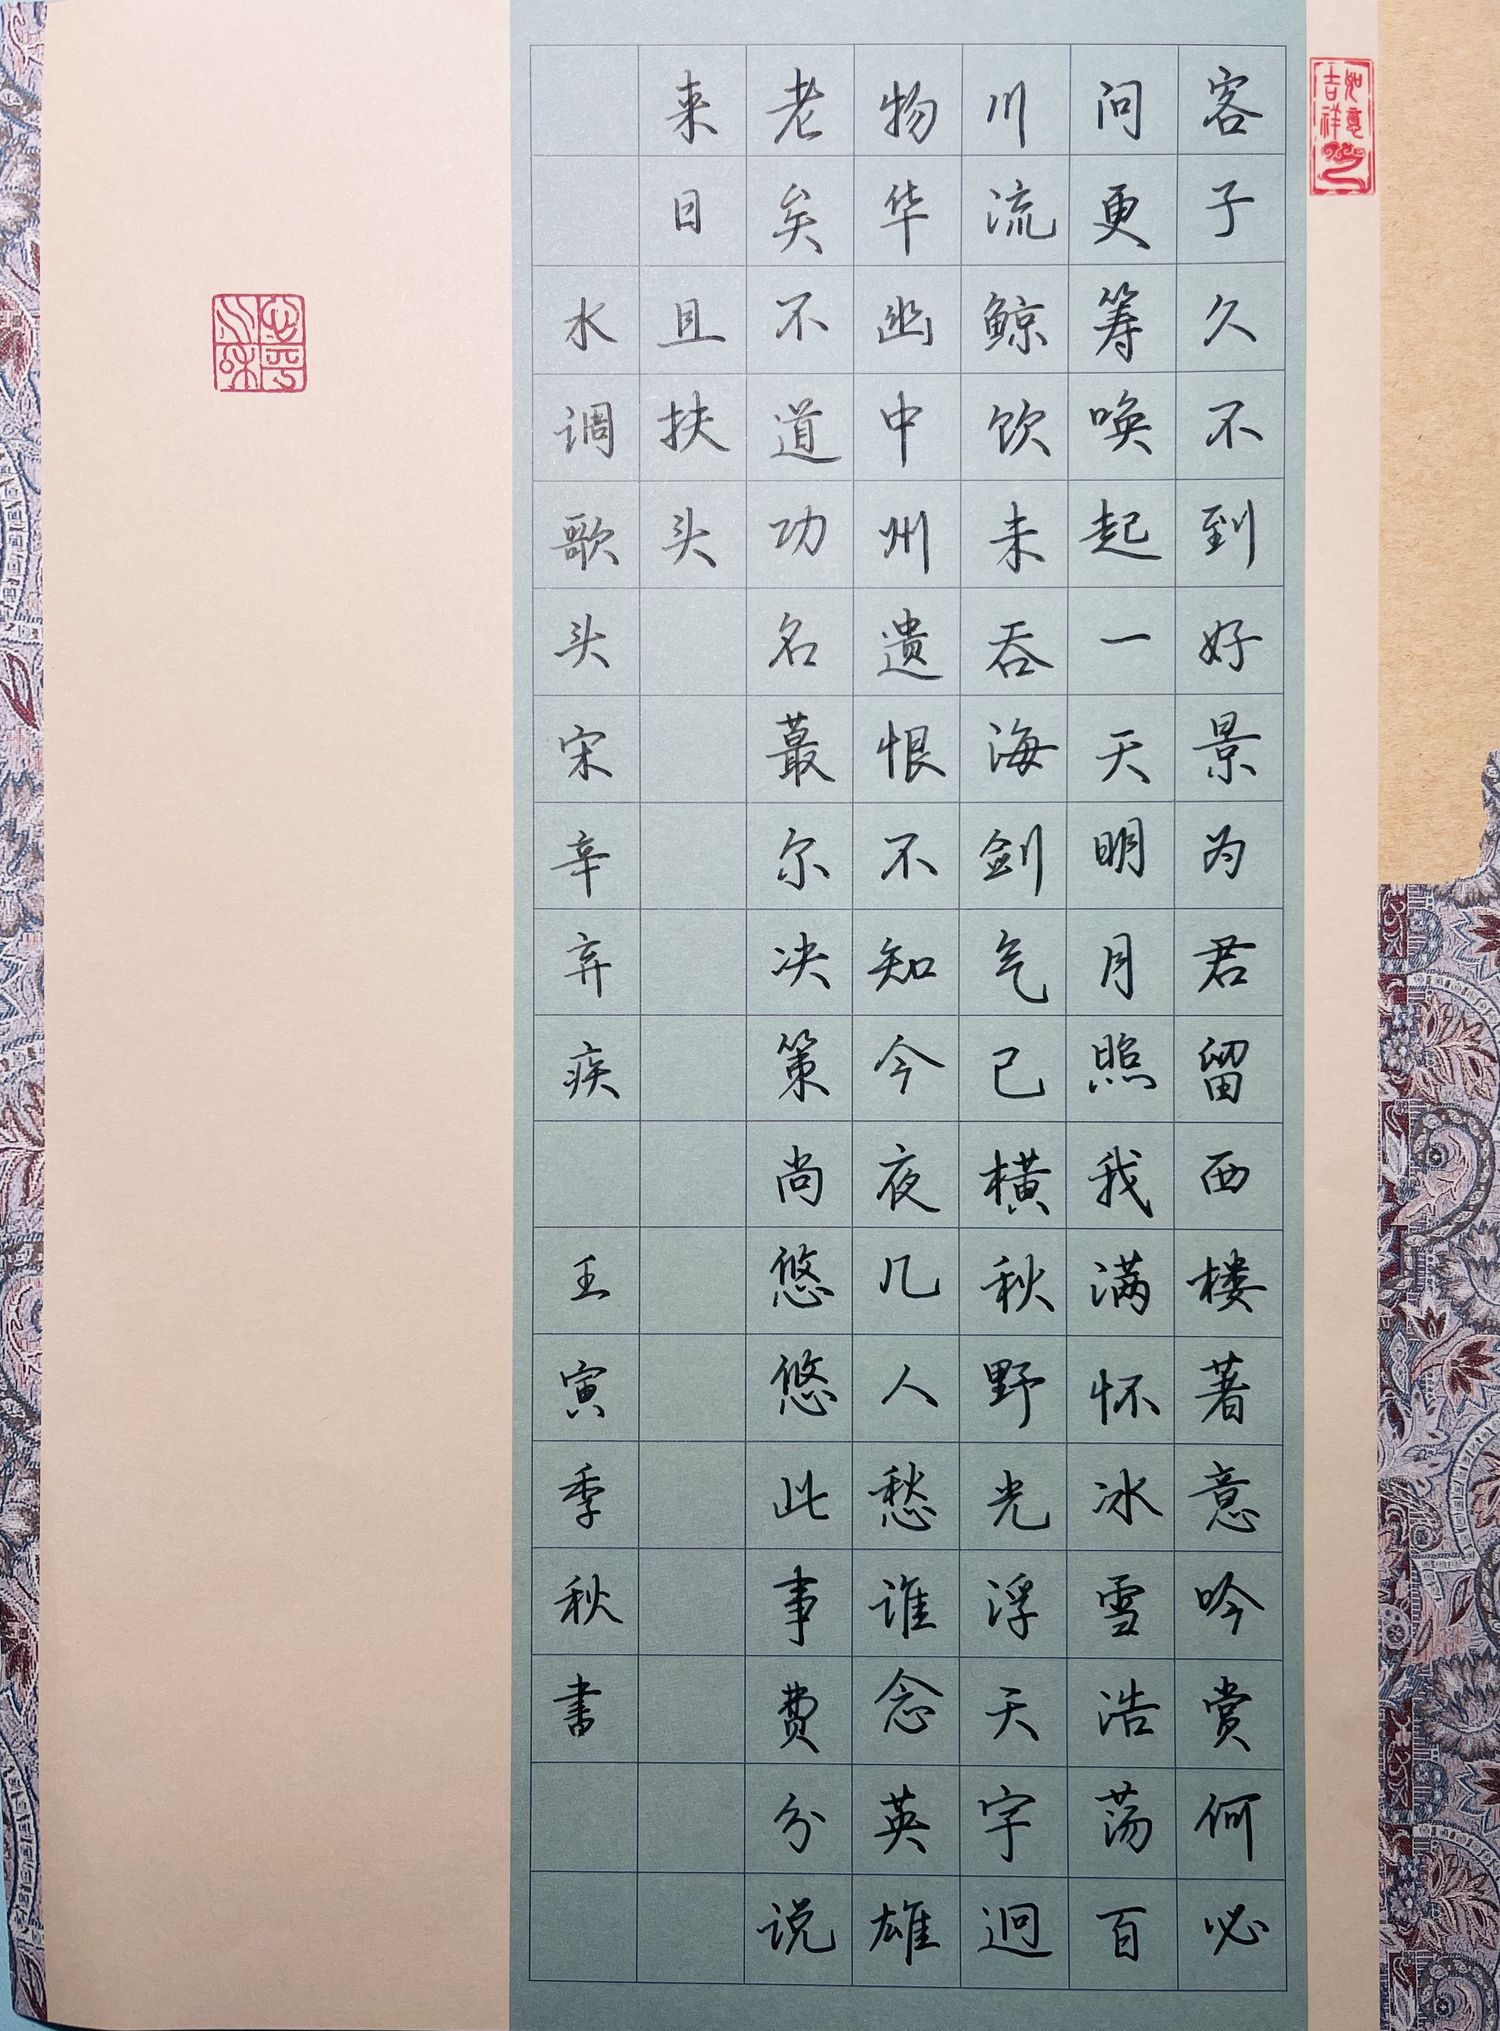 如意吉祥
客子久不到好景为君留西楼著意吟赏何必
问更筹唤起一天明月照我满怀冰雪浩荡百
川流鲸饮未吞海剑气已横秋野光浮天宇迥
物华幽中州遗恨不知今夜几人愁谁念英雄
老矣不道功名蕞尔决策尚悠悠此事费分说
来日且扶头
水调歌头宋辛弃疾 壬寅季秋書
心平气和